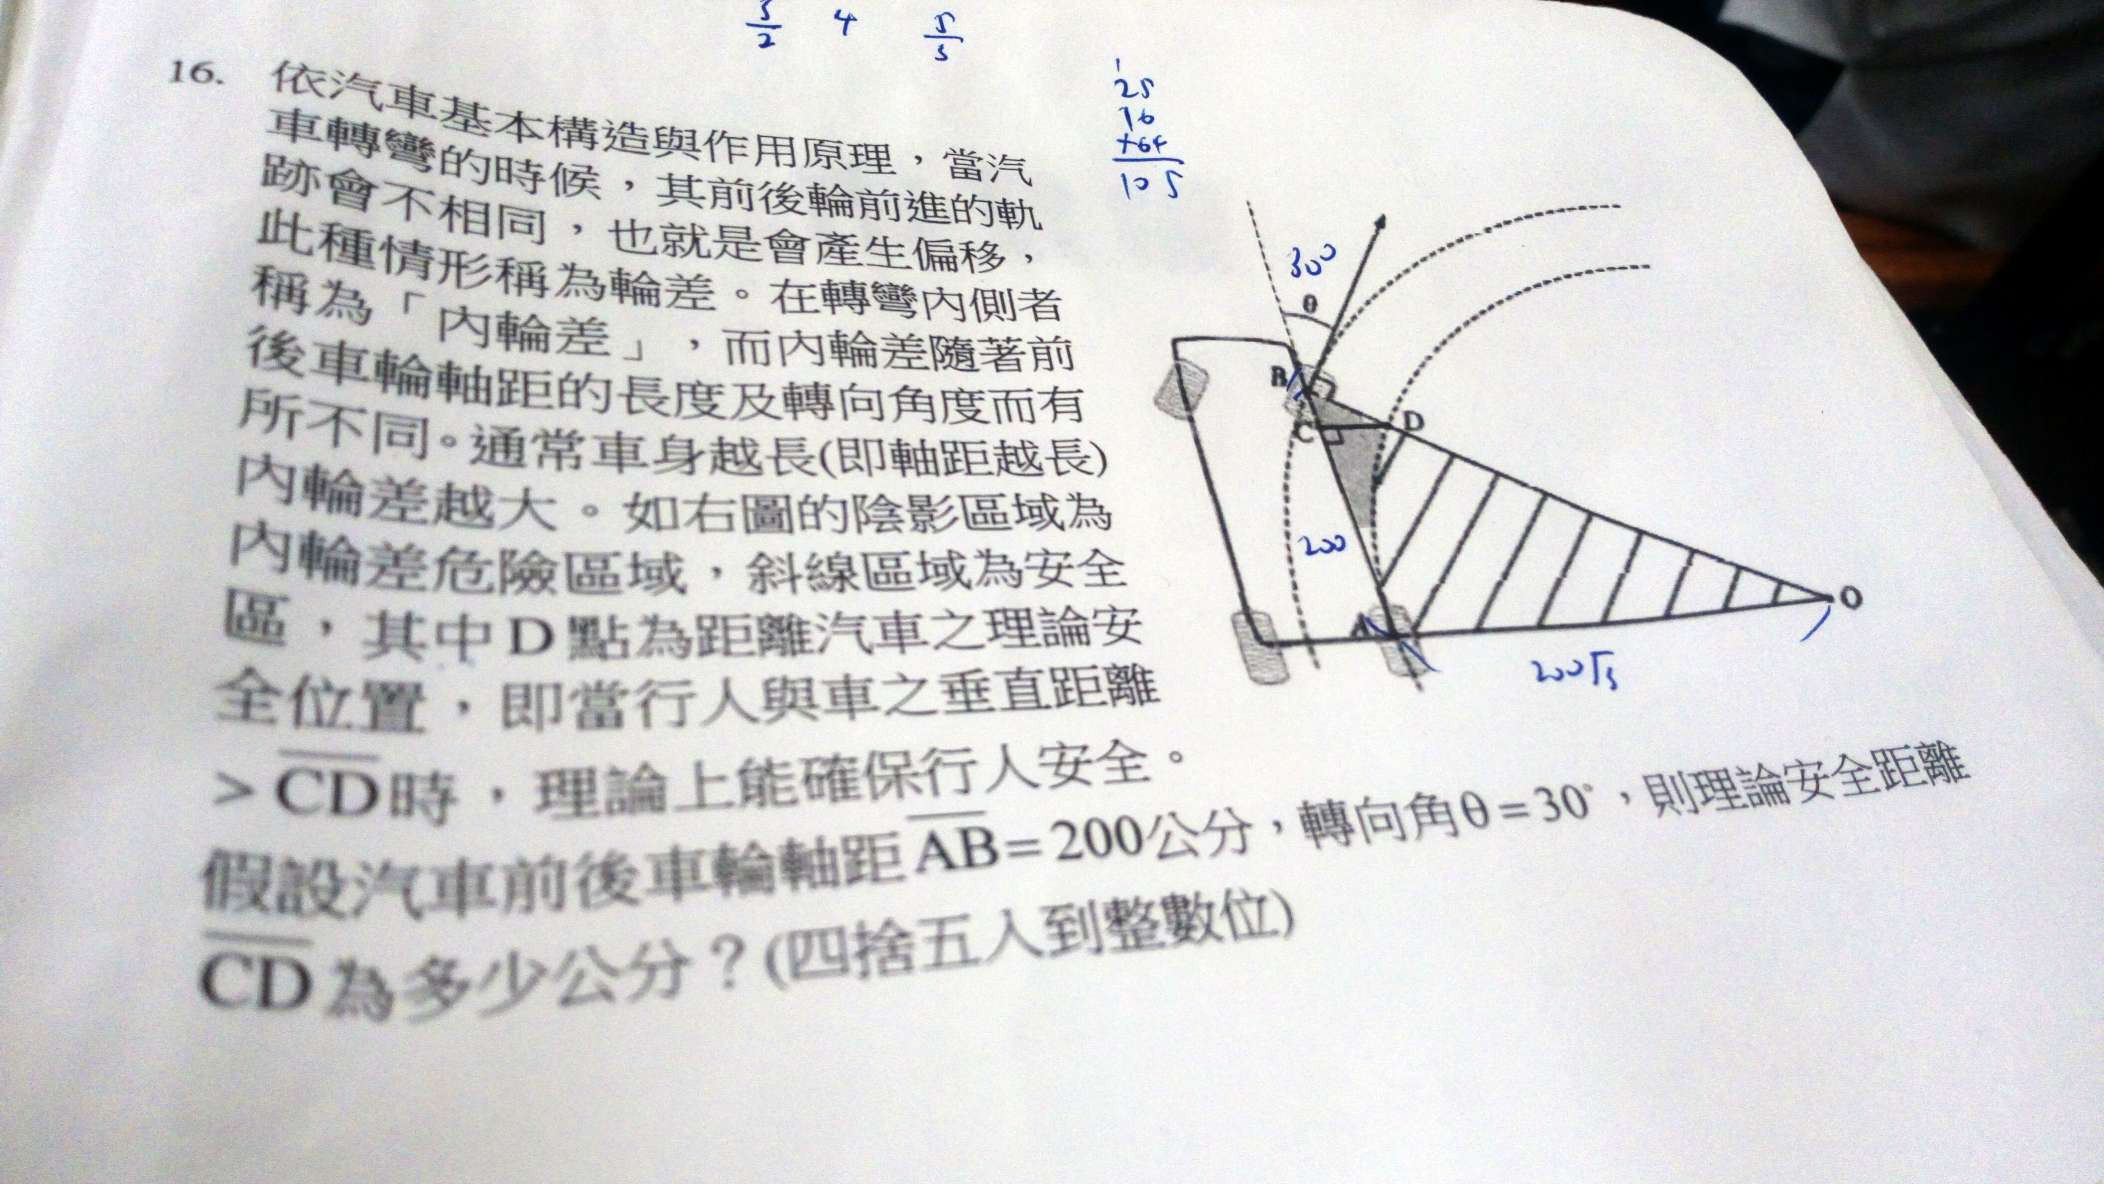 5/2 4 5/3
16. 依汽車基本構造與作用原理，當汽
車轉彎的時候，其前後輪前進的軌
跡會不相同，也就是會產生偏移，
此種情形稱為輪差。在轉彎內側者
稱為「內輪差」，而內輪差隨著前
後車輪軸距的長度及轉向角度而有
所不同。通常車身越長(即軸距越長)
內輪差越大。如右圖的陰影區域為
內輪差危險區域，斜線區域為安全
區，其中D點為距離汽車之理論安
全位置，即當行人與車之垂直距離
> CD時，理論上能確保行人安全。
假設汽車前後車輪軸距AB=200公分，轉向角θ=30°，則理論安全距離
CD為多少公分？(四捨五入到整數位)
1
25
16
+64
105
30°
θ
B
C
D
200
A
O
200√3